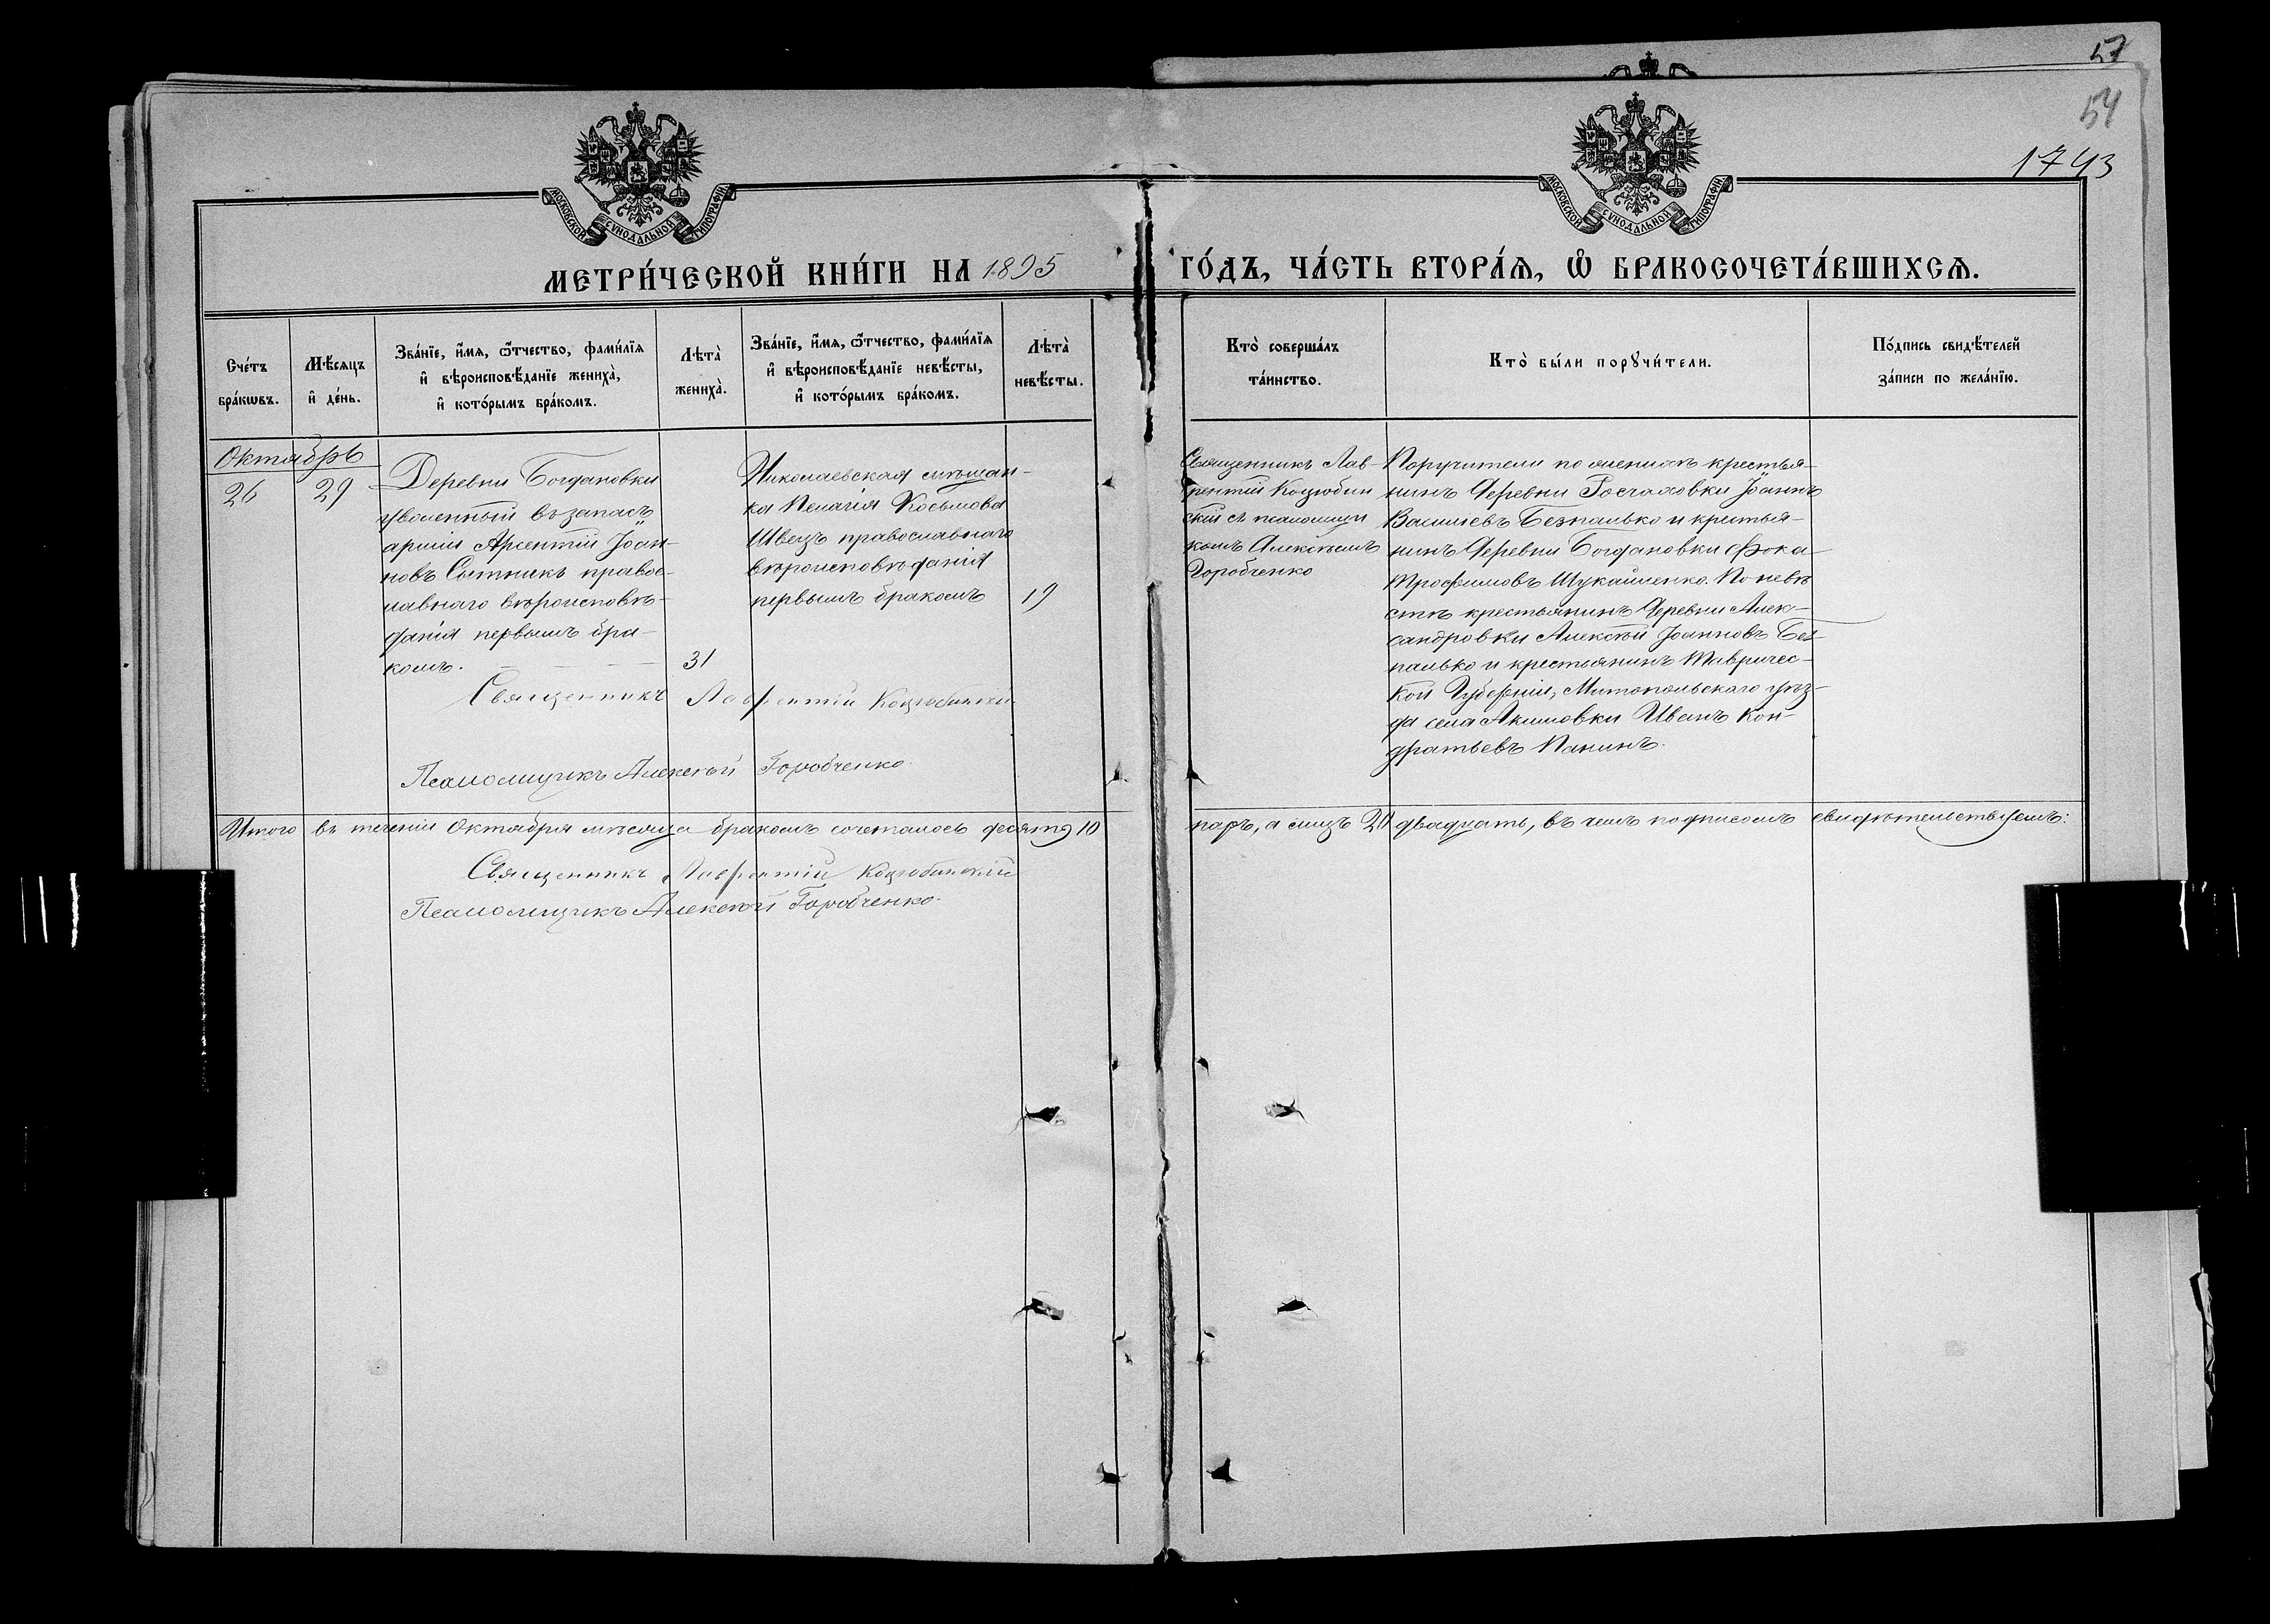 57
54
1743
МОСКОВСКОЙ СѴНОДАЛЬНОЙ ТИПОГРАФІИ
МОСКОВСКОЙ СѴНОДАЛЬНОЙ ТИПОГРАФІИ
МЕТРИ́ЧЕСКОЙ КНИ́ГИ НА 1895
ГО́ДЪ, ЧА́СТЬ ВТОРА́Ѧ, Ѽ БРАКОСОЧЕТА́ВШИХСѦ.
Сче́тъ
бра́кѡвъ.
Мѣ́сяцъ
и҆ де́нь.
Зва́нїе, и҆́мѧ, ѻ҆́тчество, фами́лїѧ
и҆ вѣроисповѣ́данїе жениха̀,
и҆ кото́рымъ бра́комъ.
Лѣта̀
жениха̀.
Зва́нїе, и҆́мѧ, ѻ҆́тчество, фами́лїѧ
и҆ вѣроисповѣ́данїе невѣ́сты,
и҆ кото́рымъ бра́комъ.
Лѣта̀
невѣ́сты.
Кто̀ соверша́лъ
та́инство.
Кто̀ бы́ли порꙋчи́тели.
По́дпись свидѣ́телей
за́писи по жела́нїю.
Октябрь
26
29
Деревни Богдановки
уволенный въ запасъ
арміи Арсентій Іоан-
новъ Сытникъ правос-
лавнаго вѣроисповѣ-
данія первымъ бра-
комъ.
31
Николаевская мѣщан-
ка Пелагія Косьмова
Швецъ православнаго
вѣроисповѣданія
первымъ бракомъ
19
Священникъ Лаврентій Коцюбинскій
Псаломщикъ Алексѣй Горобченко.
Священникъ Лав-
рентій Коцюбин
скій съ псаломщи
комъ Алексѣемъ
Горобченко
Поручители по женихѣ крестья-
нинъ Деревни Іоаннъ
Васильевъ Безпалько и крестья-
нинъ Деревни Богдановки Фока
Трофимовъ Шукайленко. По невѣ
стѣ крестьянинъ Деревни Алек-
сандровки Алексѣй Іоанновъ Без-
палько и крестьянинъ Тавричес-
кой Губерніи, Митопольскаго уѣз-
да села Акимовки Иванъ Кон-
дратьевъ Панинъ.
Итого въ теченіи Октября мѣсяца бракомъ сочеталось десять 10
паръ, а лицъ 20 двадцать, въ чемъ подписомъ свидѣтельствуемъ:
Священникъ Лаврентій Коцюбинскій
Псаломщикъ Алексѣй Горобченко.